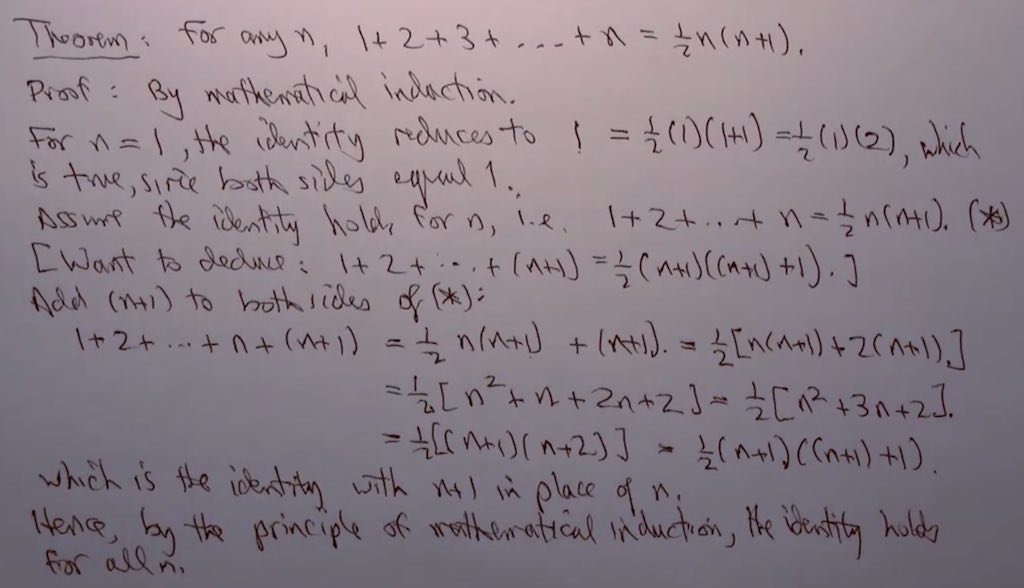 Theorem: For any n, 1+2+3+...+n = ½n(n+1).
Proof: By mathematical induction.
For n=1, the identity reduces to 1 = ½(1)(1+1) = ½(1)(2), which
is true, since both sides equal 1.
Assume the identity holds for n, i.e. 1+2+...+n = ½n(n+1). (*)
[Want to deduce: 1+2+...+(n+1) = ½(n+1)((n+1)+1).]
Add (n+1) to both sides of (*):
1+2+...+n+(n+1) = ½ n(n+1) + (n+1). = ½[n(n+1)+2(n+1).]
= ½[n²+n+2n+2] = ½[n²+3n+2].
= ½[(n+1)(n+2)] = ½(n+1)((n+1)+1).
which is the identity with n+1 in place of n.
Hence, by the principle of mathematical induction, the identity holds
for all n.